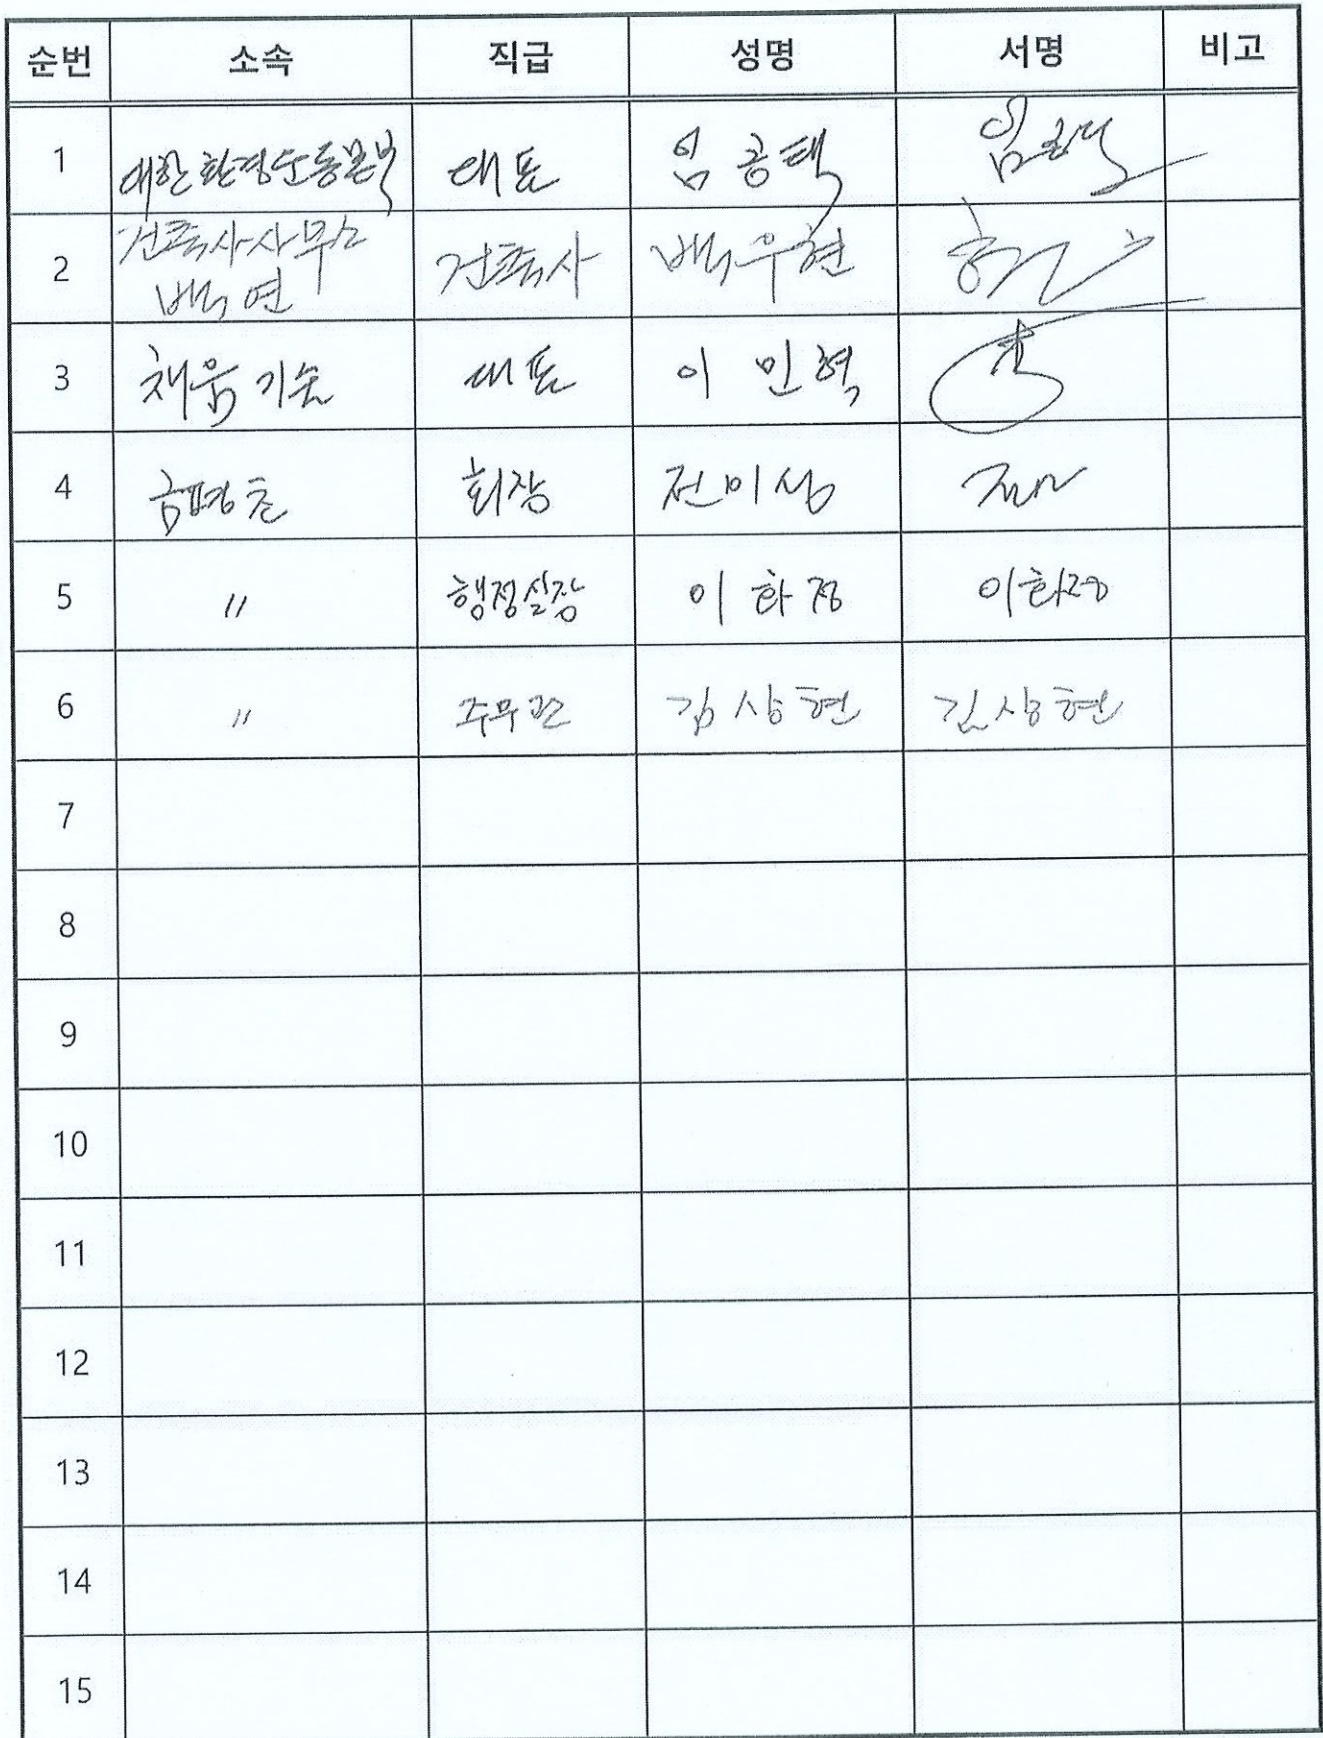 순번 소속 직급 성명 서명 비고
1 대한환경운동본부 대표 임홍택
2 건축사사무소 백연 건축사 백우현
3 채움기술 대표 이민혁
4 금평초 회장 전미성
5 〃 행정실장 이화정 이화정
6 〃 주무관 김상현 김상현
7
8
9
10
11
12
13
14
15